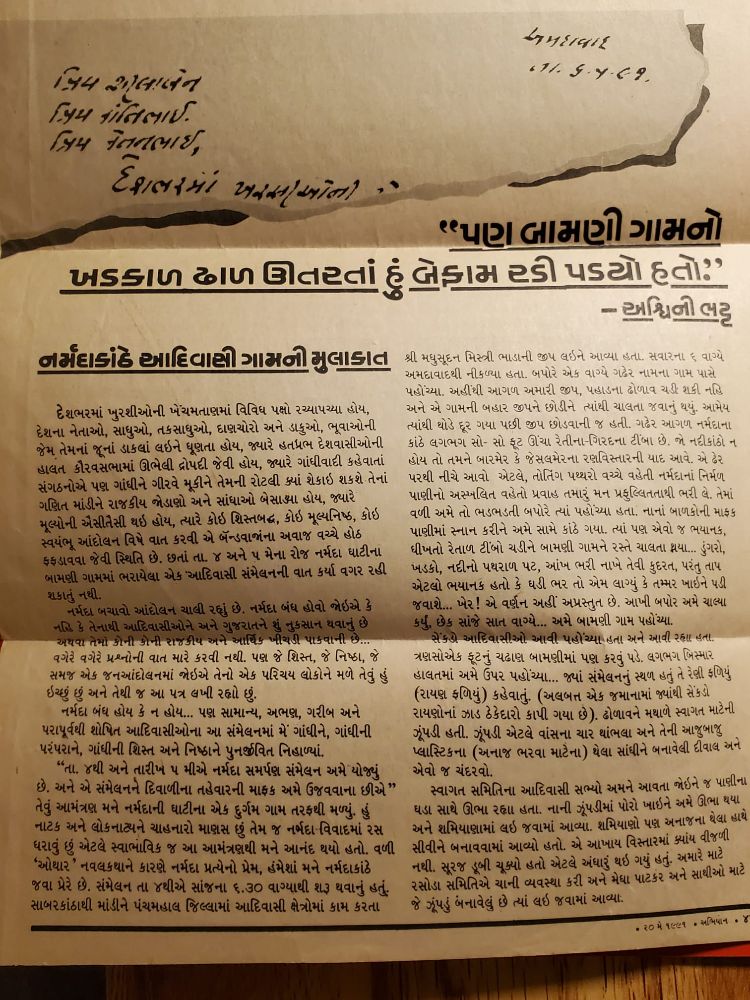 અમદાવાદ
તા. ૬-૫-૯૧.
પ્રિય શીલાબેન
પ્રિય કાંતિભાઈ.
પ્રિય કેતનભાઈ,
દેશભરમાં ખુરશીઓની
“પણ બામણી ગામનો
ખડકાળ ઢાળ ઊતરતાં હું બેફામ રડી પડયો હતો.”
– અશ્વિની ભટ્ટ
નર્મદાકાંઠે આદિવાસી ગામની મુલાકાત
દેશભરમાં ખુરશીઓની ખેંચમતાણમાં વિવિધ પક્ષો રચ્યાપચ્યા હોય,
દેશના નેતાઓ, સાધુઓ, તકસાધુઓ, દાણચોરો અને ડાકુઓ, ભૂવાઓની
જેમ તેમનાં જૂનાં ડાકલાં લઇને ધૂણતા હોય, જ્યારે હતપ્રભ દેશવાસીઓની
હાલત કૌરવસભામાં ઊભેલી દ્રૌપદી જેવી હોય, જ્યારે ગાંધીવાદી કહેવાતાં
સંગઠનોએ પણ ગાંધીને ગીરવે મૂકીને તેમની રોટલી ક્યાં શેકાઇ શકશે તેનાં
ગણિત માંડીને રાજકીય જોડાણો અને સાંધાઓ બેસાડ્યા હોય, જ્યારે
મૂલ્યોની ઐસીતૈસી થઇ હોય, ત્યારે કોઇ શિસ્તબદ્ધ, કોઇ મૂલ્યનિષ્ઠ, કોઇ
સ્વયંભૂ આંદોલન વિષે વાત કરવી એ બૅન્ડવાજાંના અવાજ વચ્ચે હોઠ
ફફડાવવા જેવી સ્થિતિ છે. છતાં તા. ૪ અને ૫ મેના રોજ નર્મદા ઘાટીના
બામણી ગામમાં ભરાયેલા એક આદિવાસી સંમેલનની વાત કર્યા વગર રહી
શકાતું નથી.
નર્મદા બચાવો આંદોલન ચાલી રહ્યું છે. નર્મદા બંધ હોવો જોઇએ કે
નહિ કે તેનાથી આદિવાસીઓને અને ગુજરાતને શું નુકસાન થવાનું છે
અથવા તેમાં કોની કોની રાજકીય અને આર્થિક ખીચડી પાકવાની છે...
વગેરે વગેરે પ્રશ્નોની વાત મારે કરવી નથી. પણ જે શિસ્ત, જે નિષ્ઠા, જે
સમજ એક જનઆંદોલનમાં જોઇએ તેનો એક પરિચય લોકોને મળે તેવું હું
ઇચ્છું છું અને તેથી જ આ પત્ર લખી રહ્યો છું.
નર્મદા બંધ હોય કે ન હોય... પણ સામાન્ય, અભણ, ગરીબ અને
પરાપૂર્વથી શોષિત આદિવાસીઓના આ સંમેલનમાં મેં ગાંધીને, ગાંધીની
પરંપરાને, ગાંધીની શિસ્ત અને નિષ્ઠાને પુનર્જીવિત નિહાળ્યાં.
“તા. ૪થી અને તારીખ ૫ મીએ નર્મદા સમર્પણ સંમેલન અમે યોજ્યું
છે. અને એ સંમેલનને દિવાળીના તહેવારની માફક અમે ઉજવવાના છીએ”
તેવું આમંત્રણ મને નર્મદાની ઘાટીના એક દુર્ગમ ગામ તરફથી મળ્યું. હું
નાટક અને લોકનાટ્યને ચાહનારો માણસ છું તેમ જ નર્મદા-વિવાદમાં રસ
ધરાવું છું એટલે સ્વાભાવિક જ આ આમંત્રણથી મને આનંદ થયો હતો. વળી
‘ઓથાર’ નવલકથાને કારણે નર્મદા પ્રત્યેનો પ્રેમ, હંમેશાં મને નર્મદાકાંઠે
જવા પ્રેરે છે. સંમેલન તા ૪થીએ સાંજના ૬.૩૦ વાગ્યાથી શરૂ થવાનું હતું.
સાબરકાંઠાથી માંડીને પંચમહાલ જિલ્લામાં આદિવાસી ક્ષેત્રોમાં કામ કરતા
શ્રી મધુસૂદન મિસ્ત્રી ભાડાની જીપ લઇને આવ્યા હતા. સવારના ૬ વાગ્યે
અમદાવાદથી નીકળ્યા હતા. બપોરે એક વાગ્યે ગઢેર નામના ગામ પાસે
પહોંચ્યા. અહીંથી આગળ અમારી જીપ, પહાડના ઢોળાવ ચડી શકી નહિ
અને એ ગામની બહાર જીપને છોડીને ત્યાંથી ચાલતા જવાનું થયું. આમેય
ત્યાંથી થોડે દૂર ગયા પછી જીપ છોડવાની જ હતી. ગઢેર આગળ નર્મદાના
કાંઠે લગભગ સો- સો ફૂટ ઊંચા રેતીના-ગિરદના ટીંબા છે. જો નદીકાંઠો ન
હોય તો તમને બારમેર કે જેસલમેરના રણવિસ્તારની યાદ આવે. એ ઢેર
પરથી નીચે આવો એટલે, તોતિંગ પથ્થરો વચ્ચે વહેતી નર્મદાનાં નિર્મળ
પાણીનો અસ્ખલિત વહેતો પ્રવાહ તમારું મન પ્રફુલ્લિતતાથી ભરી લે. તેમાં
વળી અમે તો ભડભડતી બપોરે ત્યાં પહોંચ્યા હતા. નાનાં બાળકોની માફક
પાણીમાં સ્નાન કરીને અમે સામે કાંઠે ગયા. ત્યાં પણ એવો જ ભયાનક,
ધીખતો રેતાળ ટીંબો ચડીને બામણી ગામને રસ્તે ચાલતા થયા... ડુંગરો,
ખડકો, નદીનો પથરાળ પટ, આંખ ભરી નાખે તેવી કુદરત, પરંતુ તાપ
એટલો ભયાનક હતો કે ઘડી ભર તો એમ લાગ્યું કે તમ્મર ખાઇને પડી
જવાશે... ખેર! એ વર્ણન અહીં અપ્રસ્તુત છે. આખી બપોર અમે ચાલ્યા
કર્યું, છેક સાંજે સાત વાગ્યે... અમે બામણી ગામ પહોંચ્યા.
સેંકડો આદિવાસીઓ આવી પહોંચ્યા હતા અને આવી રહ્યા હતા.
ત્રણસોએક ફૂટનું ચઢાણ બામણીમાં પણ કરવું પડે. લગભગ બિસ્માર
હાલતમાં અમે ઉપર પહોંચ્યા... જ્યાં સંમેલનનું સ્થળ હતું તે રેણી ફળિયું
(રાયણ ફળિયું) કહેવાતું. (અલબત્ત એક જમાનામાં જ્યાંથી સેંકડો
રાયણોનાં ઝાડ ઠેકેદારો કાપી ગયા છે). ઢોળાવને મથાળે સ્વાગત માટેની
ઝૂંપડી હતી. ઝૂંપડી એટલે વાંસના ચાર થાંભલા અને તેની આજુબાજુ
પ્લાસ્ટિકના (અનાજ ભરવા માટેના) થેલા સાંધીને બનાવેલી દીવાલ અને
એવો જ ચંદરવો.
સ્વાગત સમિતિના આદિવાસી સભ્યો અમને આવતા જોઇને જ પાણીના
ઘડા સાથે ઊભા રહ્યા હતા. નાની ઝૂંપડીમાં પોરો ખાઇને અમે ઊભા થયા
અને શમિયાણામાં લઇ જવામાં આવ્યા. શમિયાણો પણ અનાજના થેલા હાથે
સીવીને બનાવવામાં આવ્યો હતો. એ આખાય વિસ્તારમાં ક્યાંય વીજળી
નથી. સૂરજ ડૂબી ચૂક્યો હતો એટલે અંધારું થઇ ગયું હતું. અમારે માટે
રસોડા સમિતિએ ચાની વ્યવસ્થા કરી અને મેધા પાટકર અને સાથીઓ માટે
જે ઝૂંપડું બનાવેલું છે ત્યાં લઇ જવામાં આવ્યા.
• ૨૦ મે ૧૯૯૧ • અભિયાન • ૪